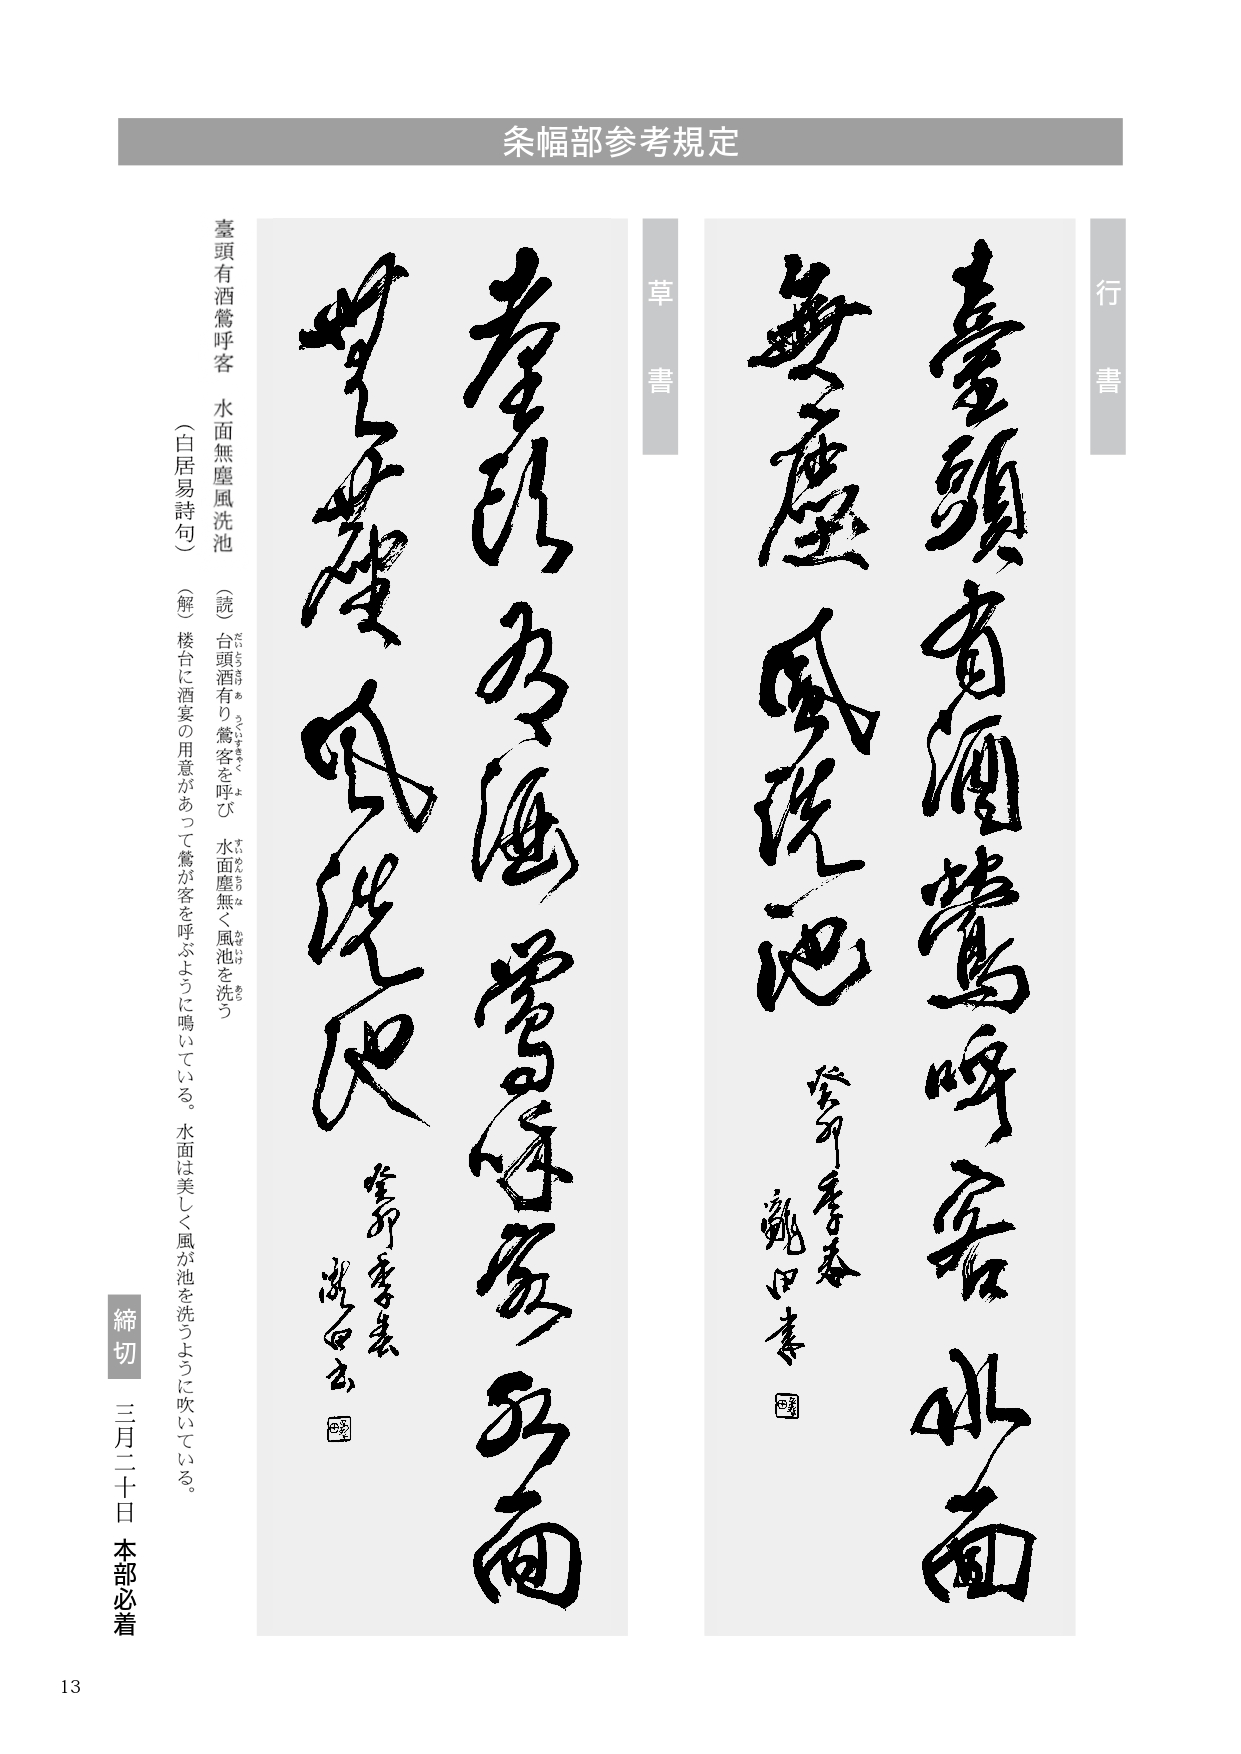 条幅部参考規定
行書
臺頭有酒鶯呼客水面
無塵風洗池
癸卯季春
龍田書
草書
臺頭有酒鶯呼客水面
無塵風洗池
癸卯季春
龍田書
臺頭有酒鶯呼客　水面無塵風洗池
（白居易詩句）
（読）台頭酒有り鶯客を呼び　水面塵無く風池を洗う
だいとうさけ あ うぐいすきゃく よ すいめんちり な かぜいけ あら
（解）楼台に酒宴の用意があって鶯が客を呼ぶように鳴いている。水面は美しく風が池を洗うように吹いている。
締切　三月二十日 本部必着
13